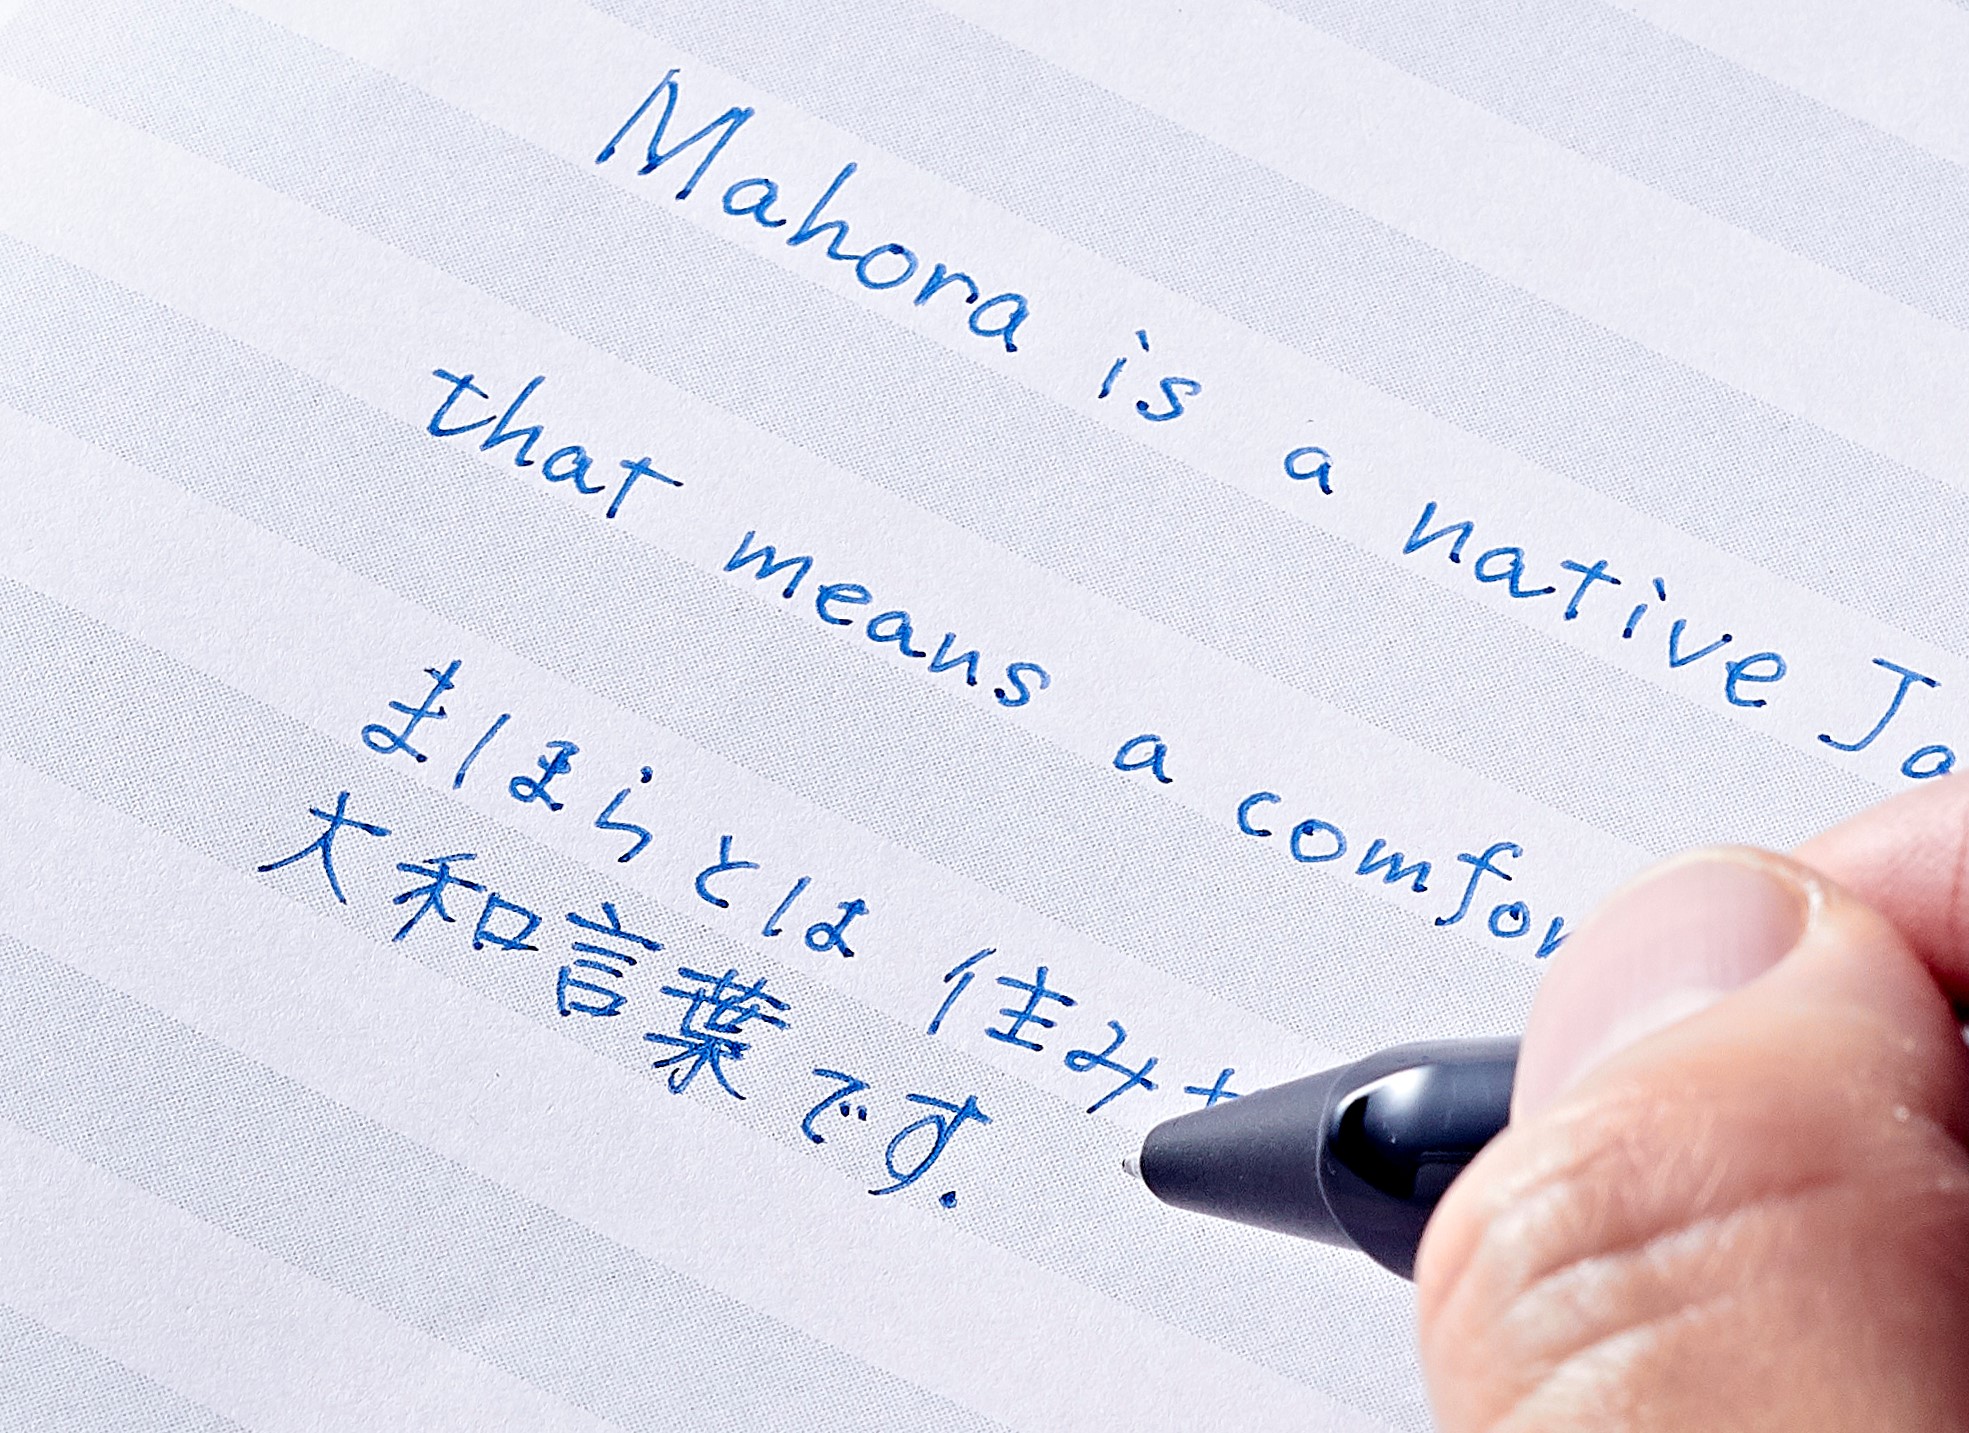 Mahora is a native
that means a
まほらとは 住み
大和言葉です.